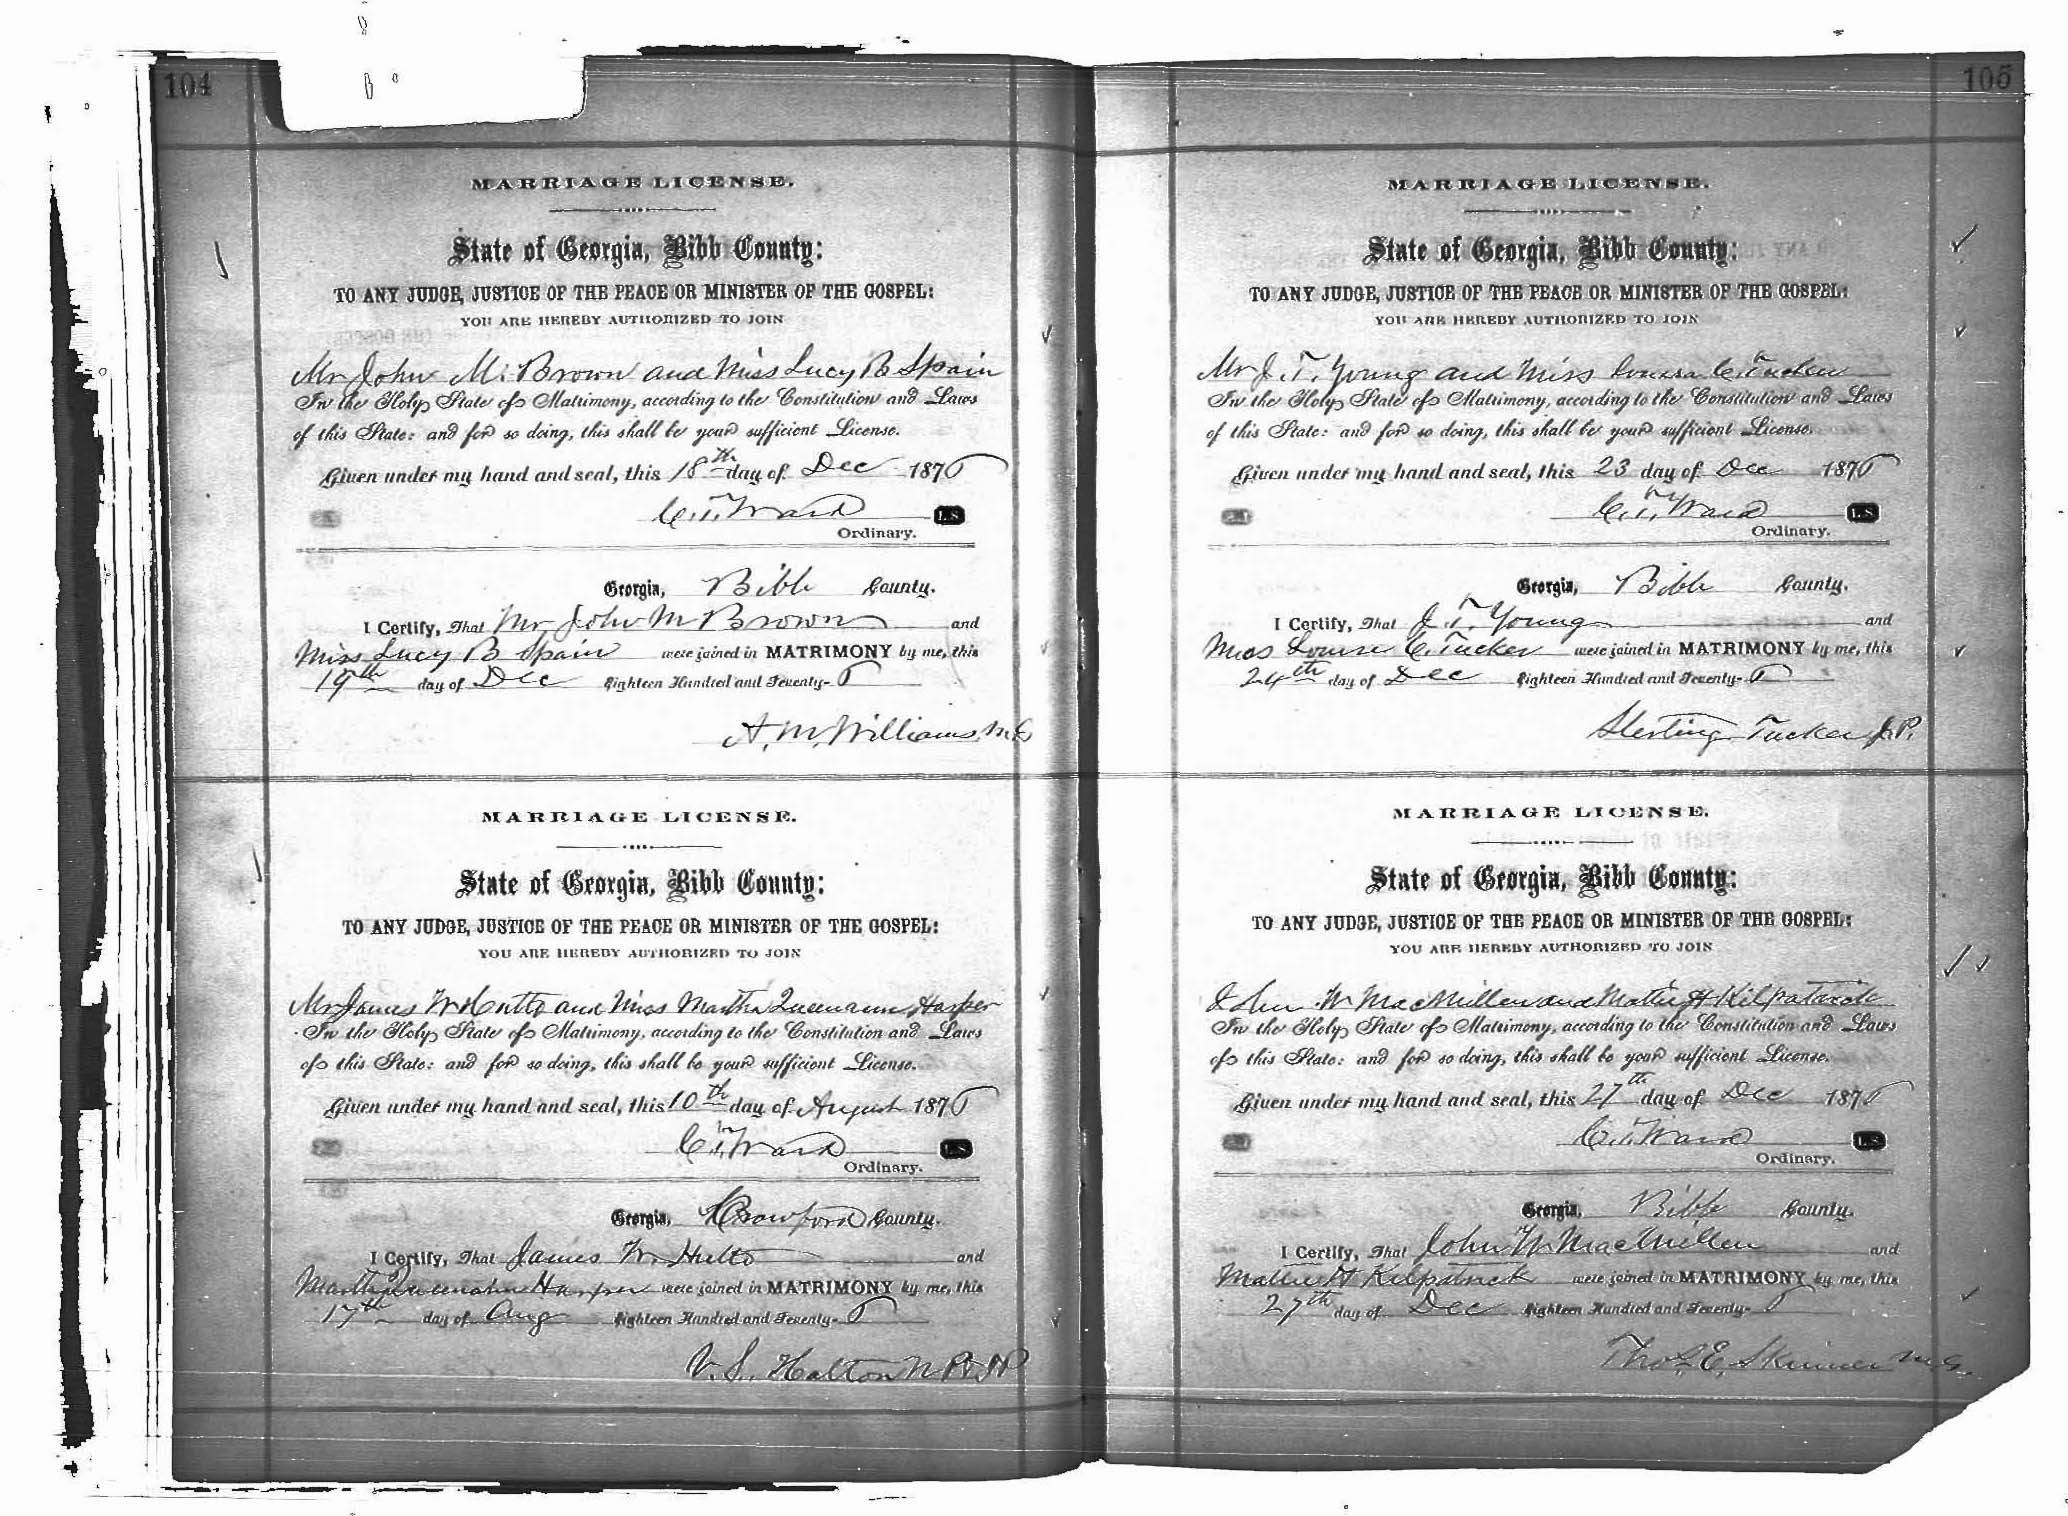 104
MARRIAGE LICENSE.
State of Georgia, Bibb County:
TO ANY JUDGE, JUSTICE OF THE PEACE OR MINISTER OF THE GOSPEL:
YOU ARE HEREBY AUTHORIZED TO JOIN
Mr John M. Brown and Miss Lucy B Spain
In the Holy State of Matrimony, according to the Constitution and Laws
of this State: and for so doing, this shall be your sufficient License.
Given under my hand and seal, this 18th day of Dec 1876
C. T. Ward L.S.
Ordinary.
Georgia, Bibb County.
I Certify, That Mr John M Brown and
Miss Lucy B Spain were joined in MATRIMONY by me, this
19th day of Dec Eighteen Hundred and Seventy-6
A. M. Williams, M.G.
MARRIAGE LICENSE.
State of Georgia, Bibb County:
TO ANY JUDGE, JUSTICE OF THE PEACE OR MINISTER OF THE GOSPEL:
YOU ARE HEREBY AUTHORIZED TO JOIN
Mr James W Hutto and Miss Martha Queenann Harper
In the Holy State of Matrimony, according to the Constitution and Laws
of this State: and for so doing, this shall be your sufficient License.
Given under my hand and seal, this 10th day of August 1876
C. T. Ward L.S.
Ordinary.
Georgia, Crawford County.
I Certify, That James W. Hutto and
Martha Queenann Harper were joined in MATRIMONY by me, this
17th day of Aug Eighteen Hundred and Seventy-6
V. S. Halton N P & J P
105
MARRIAGE LICENSE.
State of Georgia, Bibb County:
TO ANY JUDGE, JUSTICE OF THE PEACE OR MINISTER OF THE GOSPEL:
YOU ARE HEREBY AUTHORIZED TO JOIN
Mr J. T. Young and Miss Louisa C. Tucker
In the Holy State of Matrimony, according to the Constitution and Laws
of this State: and for so doing, this shall be your sufficient License.
Given under my hand and seal, this 23 day of Dec 1876
C. T. Ward L.S.
Ordinary.
Georgia, Bibb County.
I Certify, That J. T. Young and
Miss Louise C. Tucker were joined in MATRIMONY by me, this
24th day of Dec Eighteen Hundred and Seventy-6
Sterling Tucker J.P.
MARRIAGE LICENSE.
State of Georgia, Bibb County:
TO ANY JUDGE, JUSTICE OF THE PEACE OR MINISTER OF THE GOSPEL:
YOU ARE HEREBY AUTHORIZED TO JOIN
John W MacMillen and Mattie H Kilpatrick
In the Holy State of Matrimony, according to the Constitution and Laws
of this State: and for so doing, this shall be your sufficient License.
Given under my hand and seal, this 27th day of Dec 1876
C. T. Ward L.S.
Ordinary.
Georgia, Bibb County.
I Certify, That John W MacMillen and
Mattie H Kilpatrick were joined in MATRIMONY by me, this
27th day of Dec Eighteen Hundred and Seventy-6
Thos. E. Skinner M.G.